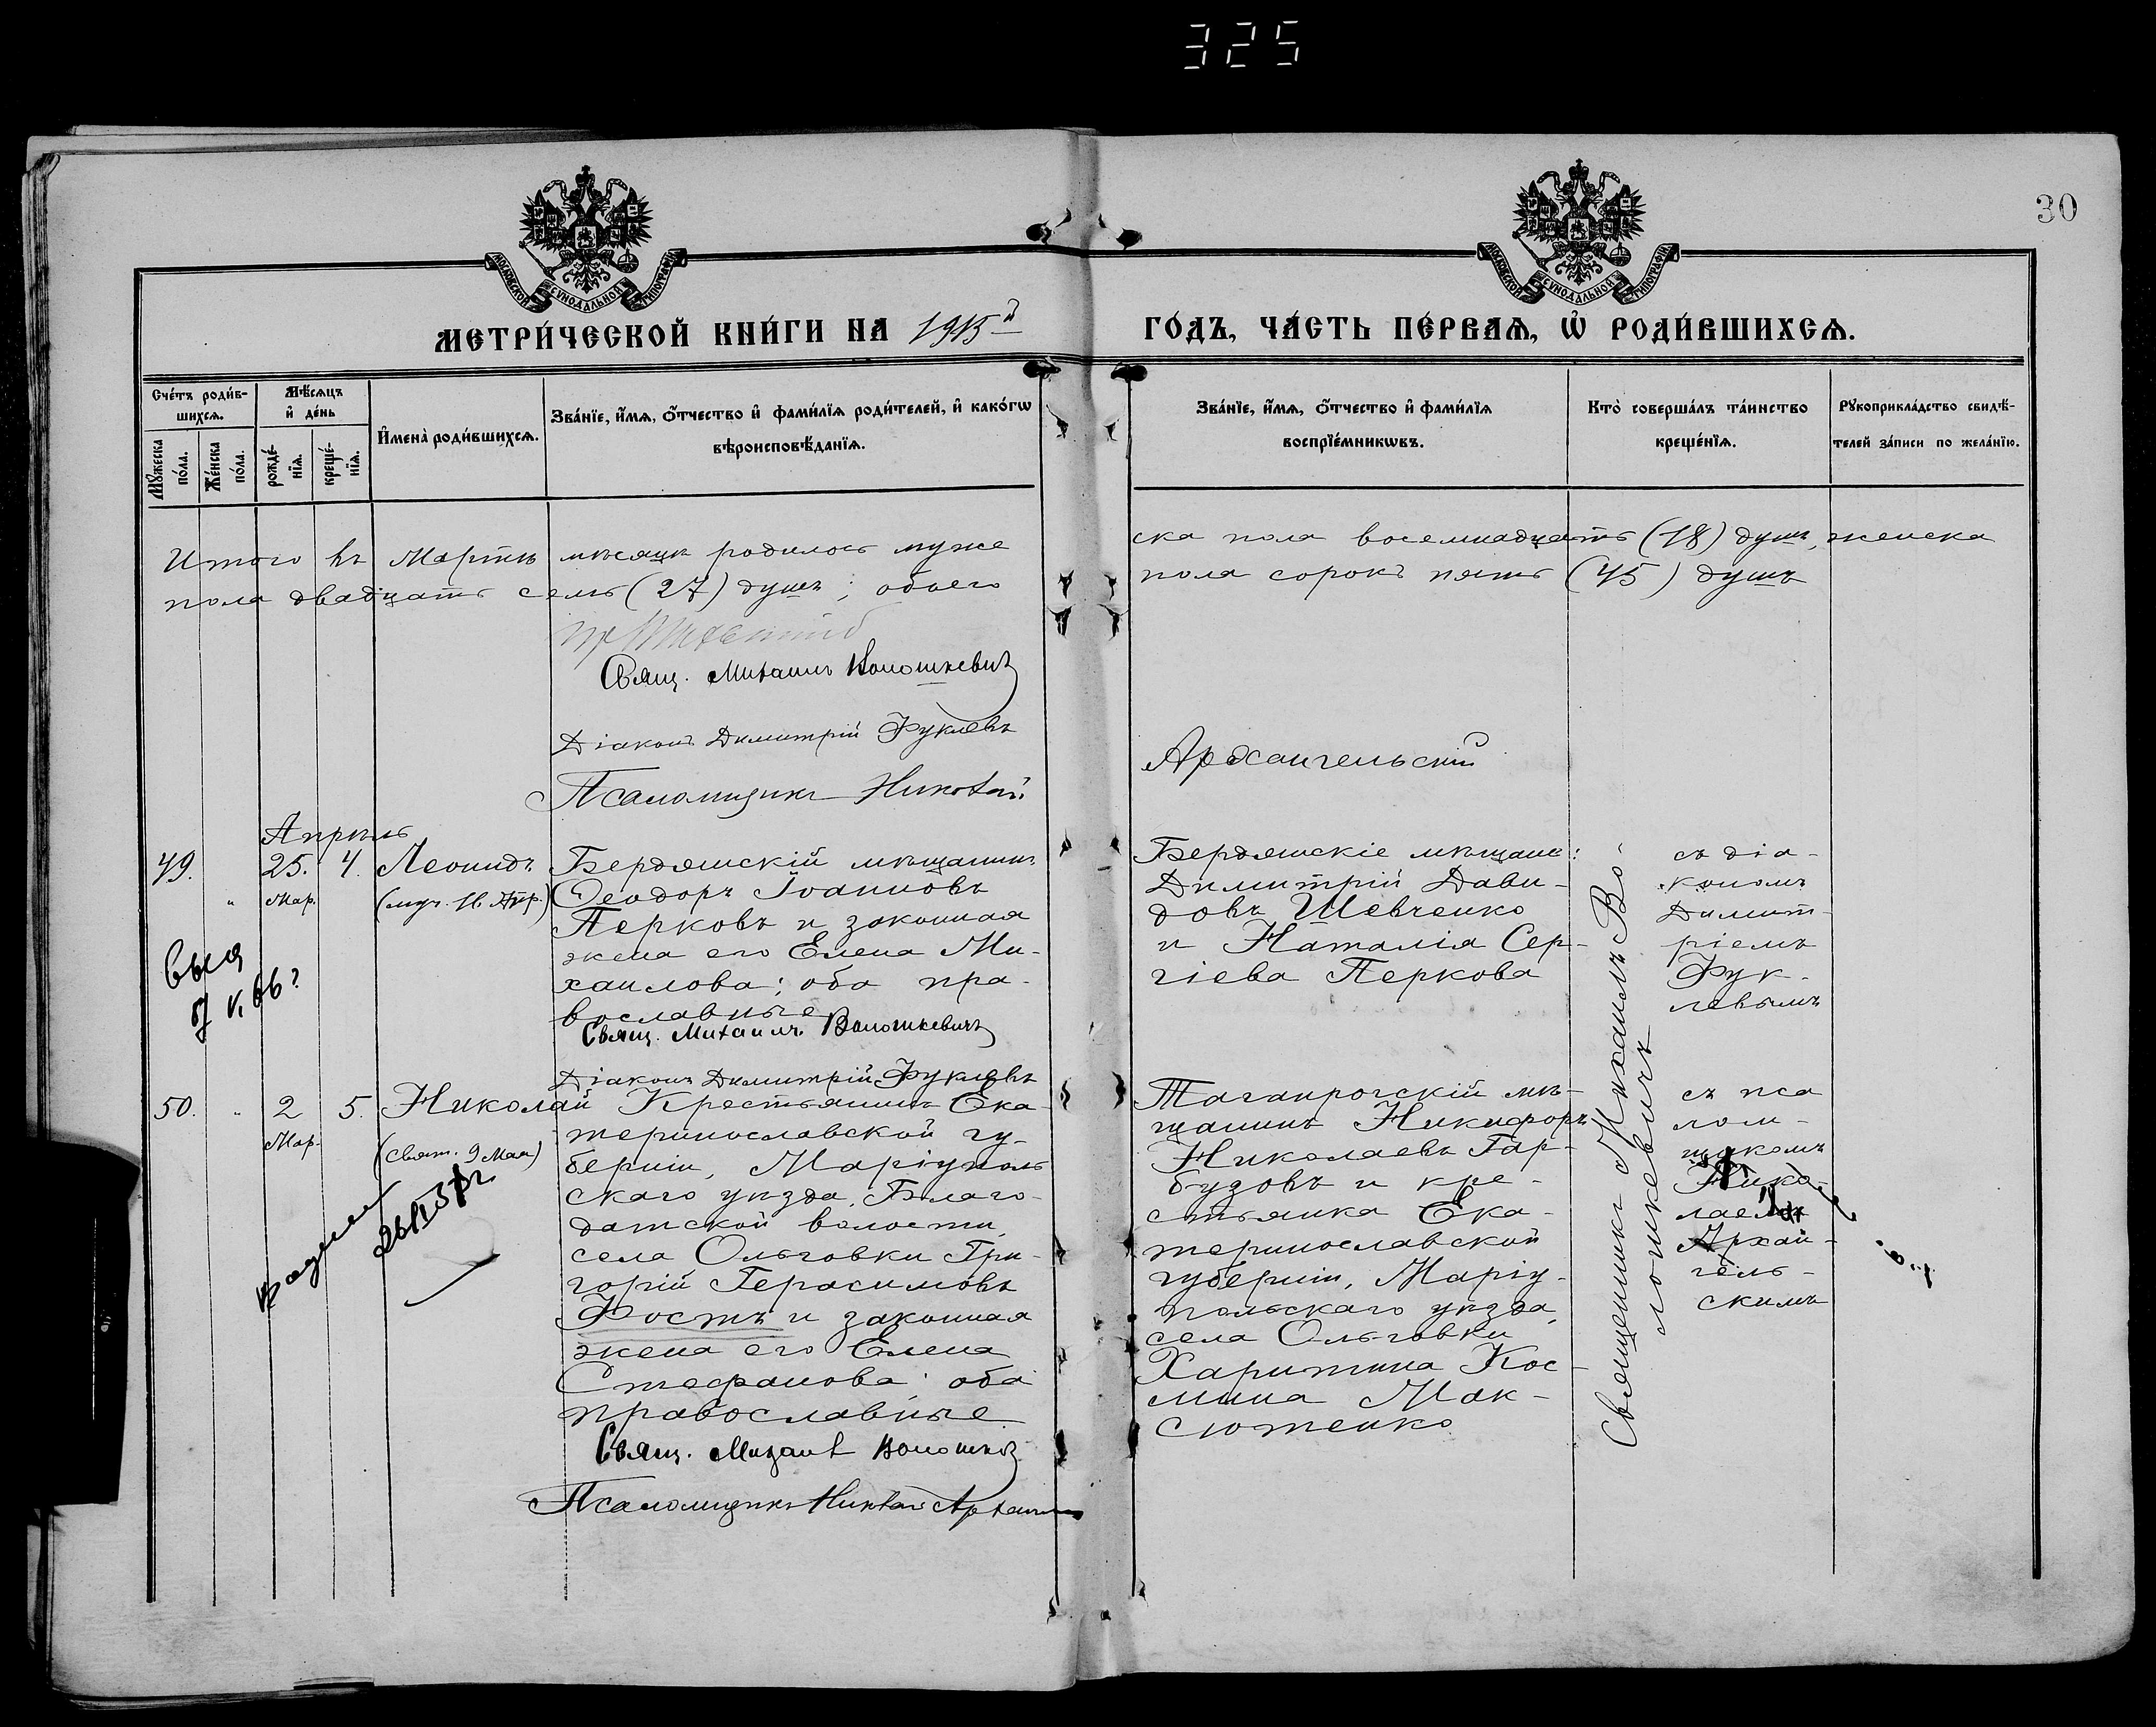 325
30
МОСКОВСКОЙ СѴНОДАЛЬНОЙ ТИПОГРАФІИ
МОСКОВСКОЙ СѴНОДАЛЬНОЙ ТИПОГРАФІИ
МЕТРИ́ЧЕСКОЙ КНИ́ГИ НА 1915й ГО́ДЪ, ЧА́СТЬ ПЕ́РВАѦ, Ѡ҆ РОДИ́ВШИХСѦ.
Сче́тъ роди́в-
шихсѧ.
Мꙋ́жеска по́ла.
Же́нска по́ла.
Мѣ́сѧцъ
и҆ де́нь
рожде́-
нїѧ.
креще́-
нїѧ.
И҆мена̀ роди́вшихсѧ.
Зва́нїе, и҆́мѧ, ѻ҆́тчество и҆ фами́лїѧ роди́телей, и҆ како́гѡ
вѣроисповѣ́данїѧ.
Зва́нїе, и҆́мѧ, ѻ҆́тчество и҆ фами́лїѧ
воспрїе́мникѡвъ.
Кто̀ соверша́лъ та́инство
креще́нїѧ.
Рꙋкоприкла́дство свидѣ́-
телей за́писи по жела́нїю.
Итого въ Мартѣ мѣсяцѣ родилось муже
ска пола восемнадцать (18) душъ, женска
пола двадцать семь (27) душъ; обоего
пола сорокъ пять (45) душъ
Свящ. Михаилъ Волошкевичъ
Діаконъ Димитрій Фуклевъ
Псаломщикъ Николай
Архангельскій
Апрѣль
49.
"
25.
Мар.
4.
Леонидъ
(муч. 16 Апр.)
Бердянскій мѣщанинъ
Ѳеодоръ Іоанновъ
Перковъ и законная
жена его Елена Ми-
хаилова; оба пра-
вославные
Свящ. Михаилъ Волошкевичъ
Діаконъ Димитрій Фуклевъ
Бердянскіе мѣщане:
Димитрій Дави-
довъ Шевченко
и Наталія Сер-
гіева Перкова
Священникъ Михаилъ Во-
лошкевичъ
съ діа-
кономъ
Димит-
ріемъ
Фук-
левымъ
50.
"
2
Мар.
5.
Николай
(свят. 9 Мая)
Крестьянинъ Ека-
теринославской гу-
берніи, Маріуполь
скаго уѣзда, Благо-
датской волости,
села Ольговки Гри-
горій Герасимовъ
Фостъ и законная
жена его Елена
Стефанова; оба
православные
Свящ. Михаилъ Волошкевичъ
Псаломщикъ Николай Архангельскій
Таганрогскій мѣ-
щанинъ Никифоръ
Николаевъ Гар-
бузовъ и кре-
стьянка Ека-
теринославской
губерніи, Маріу-
польскаго уѣзда,
села Ольговки
Харитина Кос-
мина Мак-
сютенко
съ пса
лом-
щикомъ
Нико-
лаемъ
Архан-
гель-
скимъ